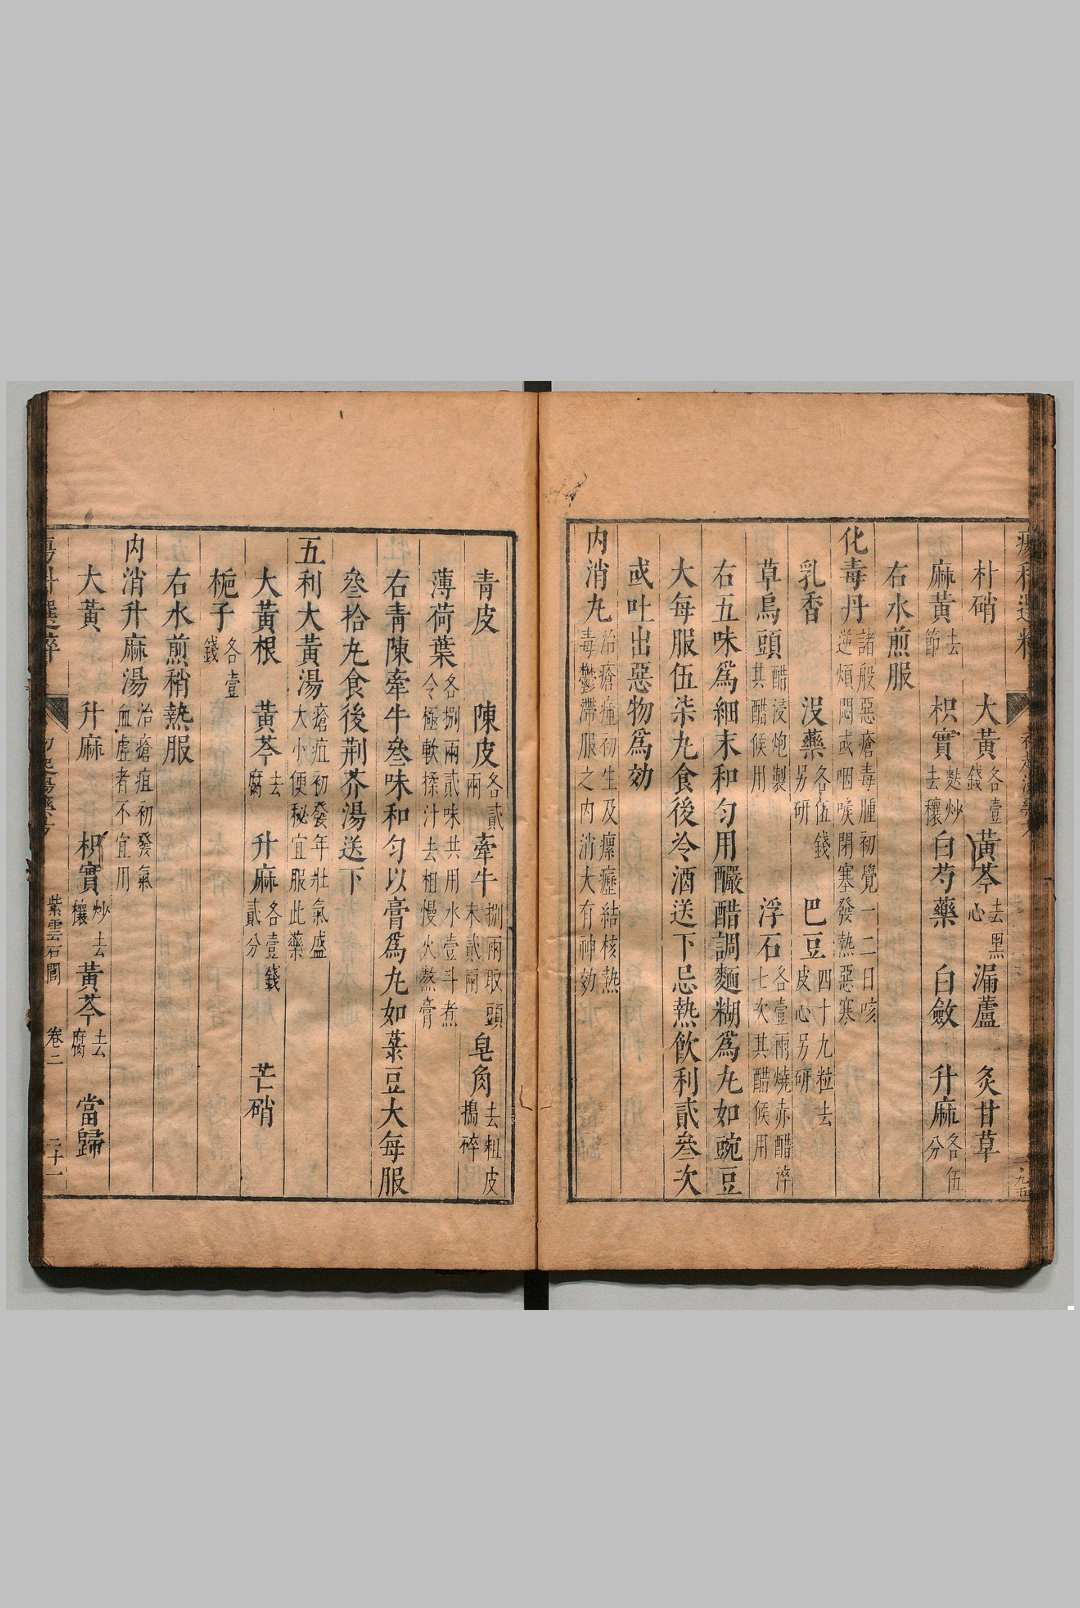 朴硝　大黃各壹錢　黃芩去黑心　漏蘆　炙甘草
麻黃去節　枳實麩炒去穰　白芍藥　白斂　升麻各伍分
右水煎服
化毒丹諸般惡瘡毒腫初覺一二日咳逆煩悶或咽喉閉塞發熱惡寒
乳香　沒藥各伍錢另研　巴豆四十九粒去皮心另研
草烏頭醋浸炮製其醋候用　浮石各壹兩燒赤醋淬七次其醋候用
右五味爲細末和勻用釅醋調麵糊爲丸如豌豆
大每服伍柒丸食後冷酒送下忌熱飲利貳叁次
或吐出惡物爲効
內消丸治瘡癰初生及瘰癧結核熱毒鬱滯服之內消大有神効
青皮　陳皮各貳兩　牽牛捌兩取頭末貳兩　皂角去粗皮搗碎
薄荷葉各捌兩貳味共用水壹斗煮令極軟揉汁去柤慢火熬膏
右青陳牽牛叁味和勻以膏爲丸如菉豆大每服
叁拾丸食後荆芥湯送下
五利大黃湯瘡疽初發年壯氣盛大小便秘宜服此藥
大黃根　黃芩去腐　升麻各壹錢貳分　芒硝
梔子各壹錢
右水煎稍熱服
內消升麻湯治瘡疽初發氣血虛者不宜用
大黃　升麻　枳實炒去穰　黃芩去腐　當歸
瘍科選粹
紫雲石閣　卷二
二十一